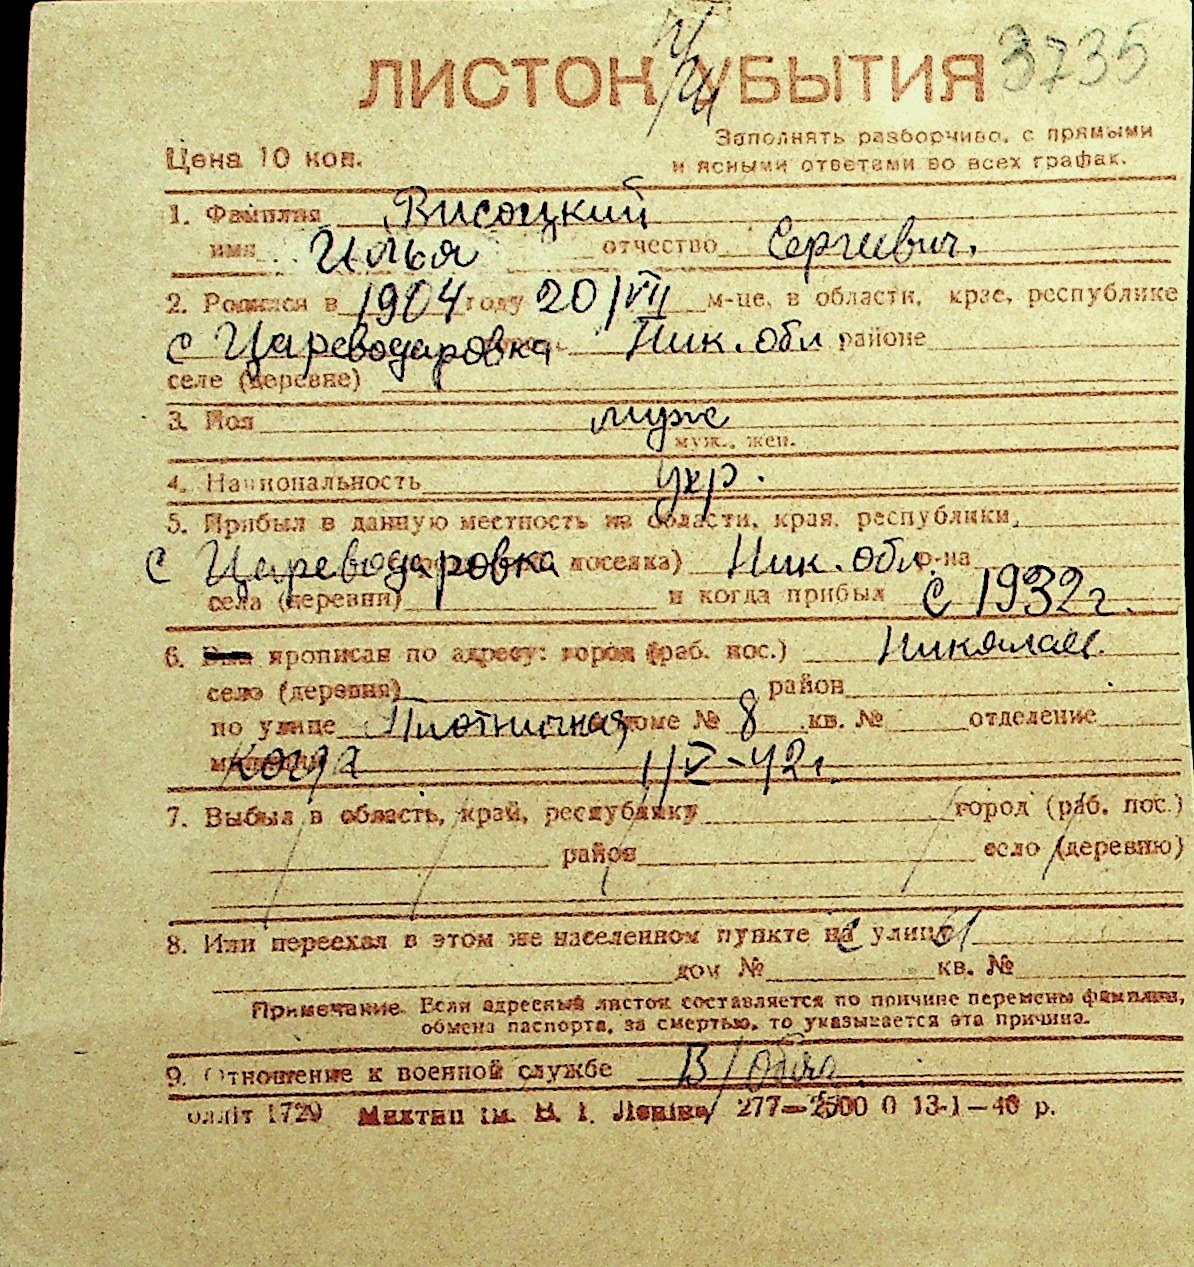 ЛИСТОК УБЫТИЯ 3735
Заполнять разборчиво, с прямыми
Цена 10 коп. и ясными ответами во всех графах.
1. Фамилия Висоцкий
имя Илья отчество Сергиевич.
2. Родился в 1904 году 20/VII м-це, в области, крае, республике
с Цареводаровка Ник. обл районе
селе (деревне)
3. Пол муж
муж., жен.
4. Национальность укр.
5. Прибыл в данную местность из области, края, республики,
с Цареводаровка поселка) Ник. обл. р-на
села (деревни) и когда прибыл с 1932 г.
6. прописан по адресу: город (раб. пос.) Николаев.
село (деревня) район
по улице Плотничная доме № 8 кв. № отделение
Когда 1/V-42 г.
7. Выбыл в область, край, республику город (раб. пос.)
район село (деревню)
8. Или переехал в этом же населенном пункте на улицу
дом № кв. №
Примечание. Если адресный листок составляется по причине перемены фамилии,
обмена паспорта, за смертью, то указывается эта причина.
9. Отношение к военной службе В/обяз.
олліт 1729 Миктип ім. В. І. Леніна 277—2500 0 13-1—40 р.